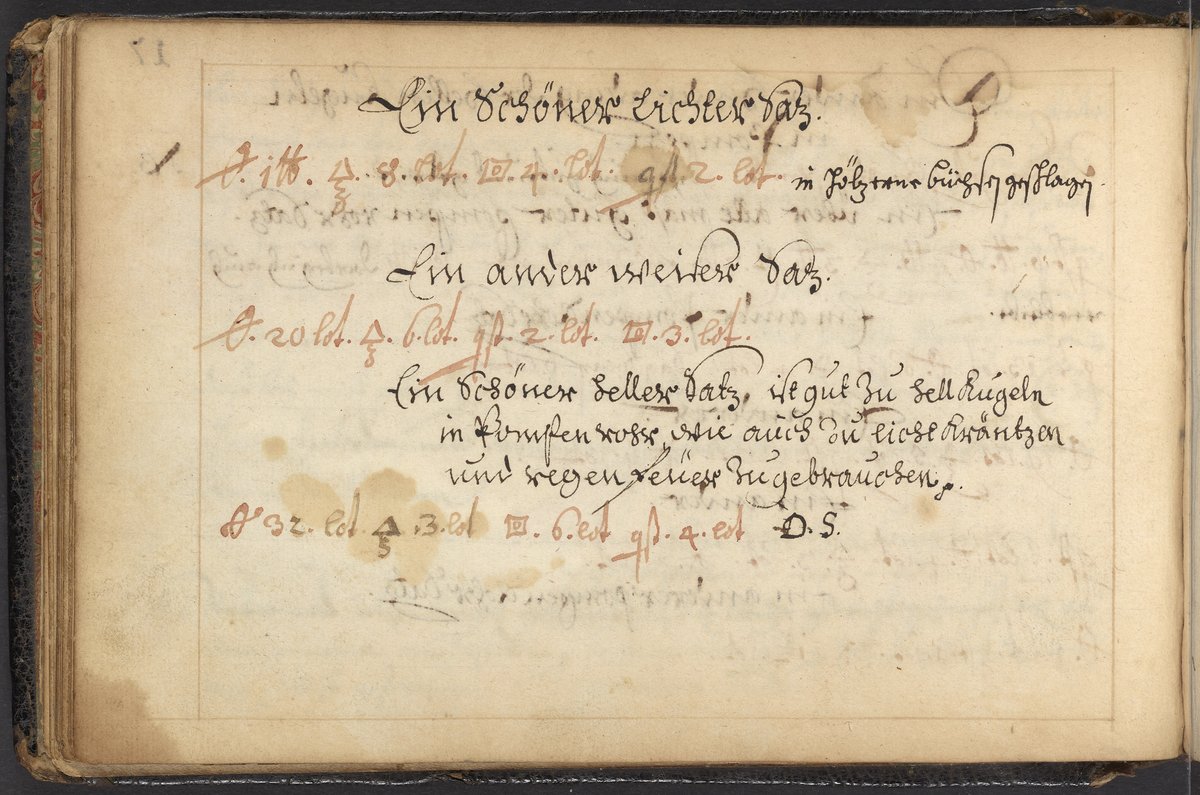 Ein Schöner lichter Satz.
1 ℔. 8. lot. 4. lot. 2. lot. in höltzerne büchsen geschlagen.
Ein ander weiser Satz.
20 lot. 6. lot. 2. lot. 3. lot.
Ein Schöner heller Satz, ist gut zu hell Kugeln
in Pompen rohr, wie auch zu licht Kräntzen
und regen feüer zugebrauchen.
32. lot. 3. lot 6. lot 4. lot O. S.
17